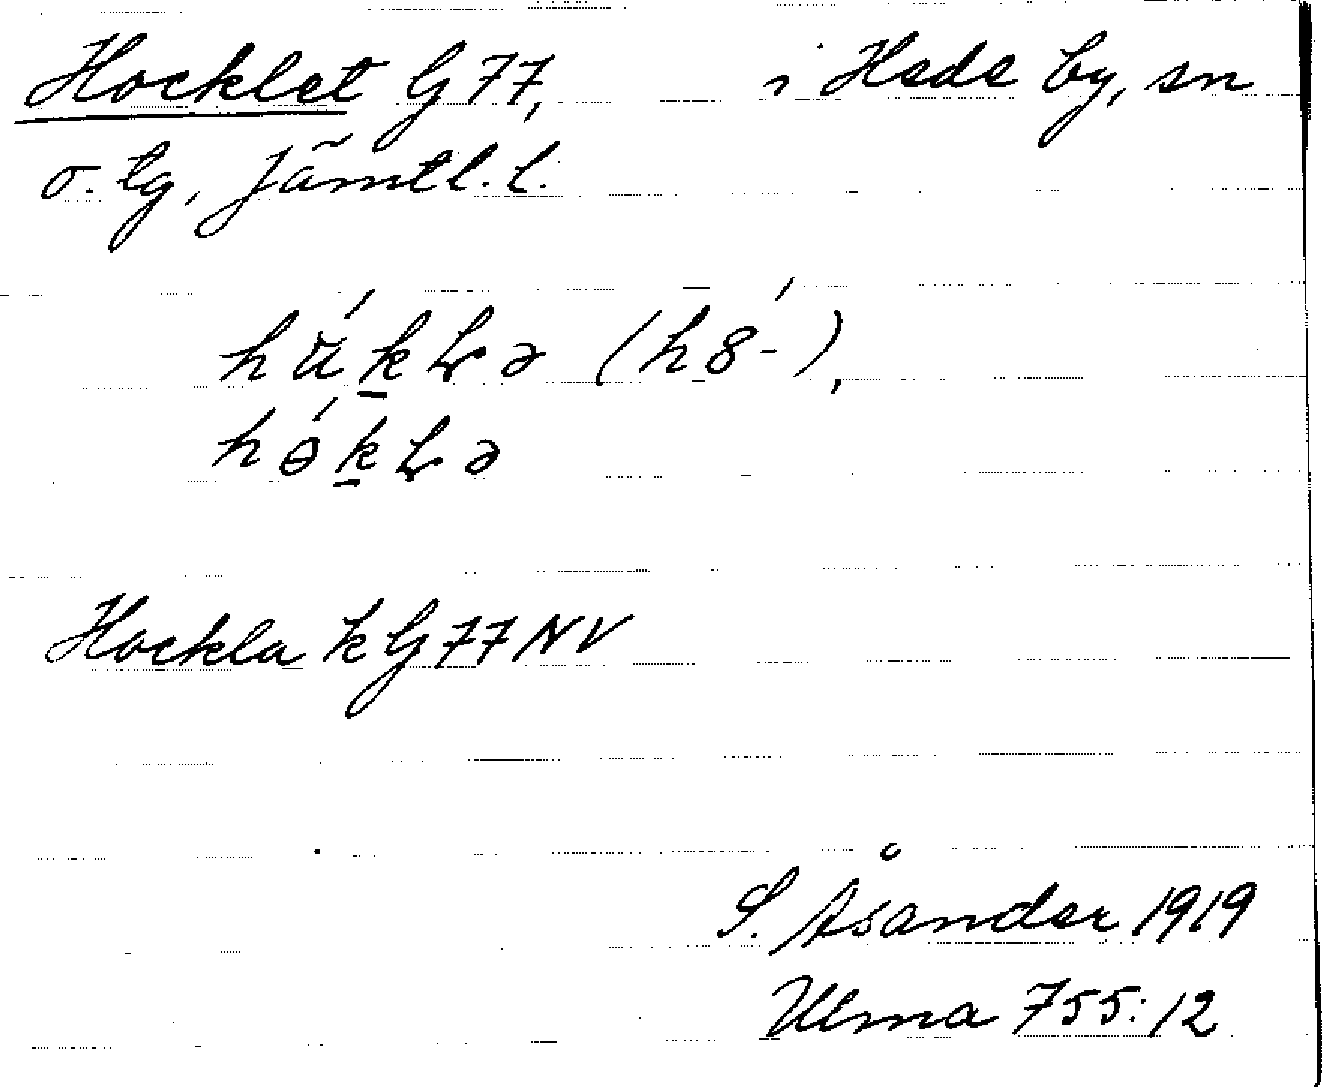 Hocklet G 77, i Hede by, sn
o. tg, Jämtl. l.
hǻk̲Łə (h8́-),
hɵ́k̲Łə
Hockla k G 77 NV
S. Åsander 1919
Ulma 755:12